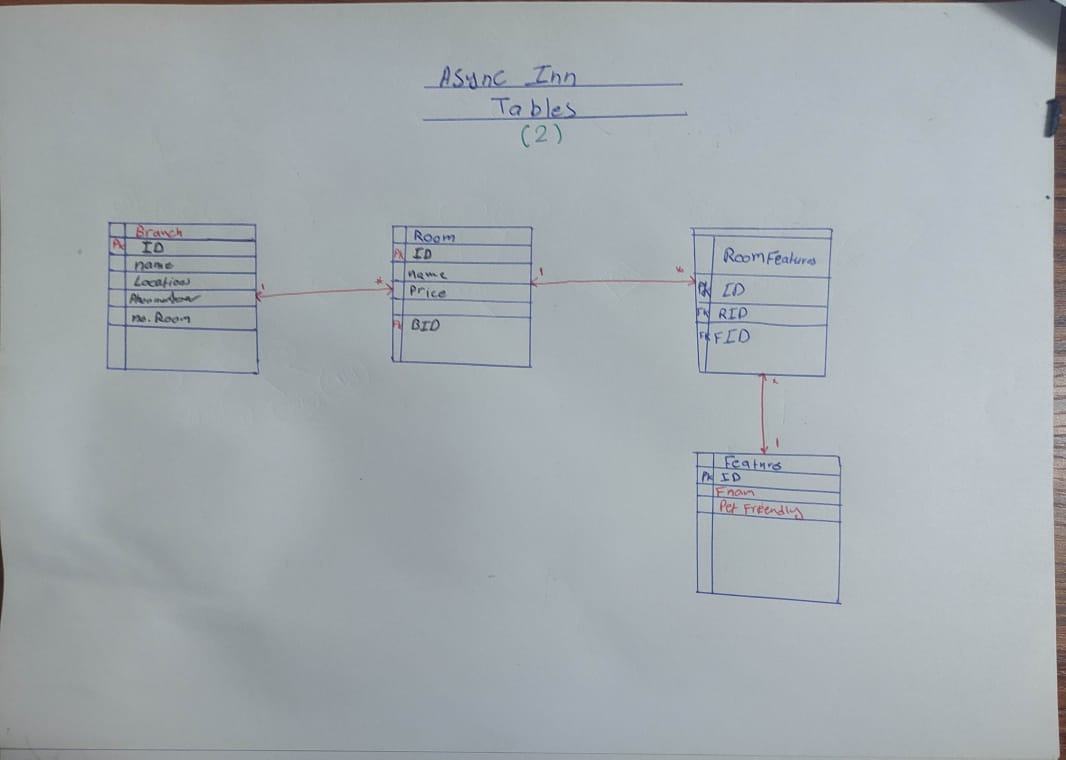 Async Inn
Tables
(2)
Branch
PK ID
name
Location
no. Room
1
*
Room
PK ID
name
Price
FK BID
1
*
RoomFeatures
PK ID
FK RID
FK FID
*
1
Features
PK ID
Fnam
Pet Friendly